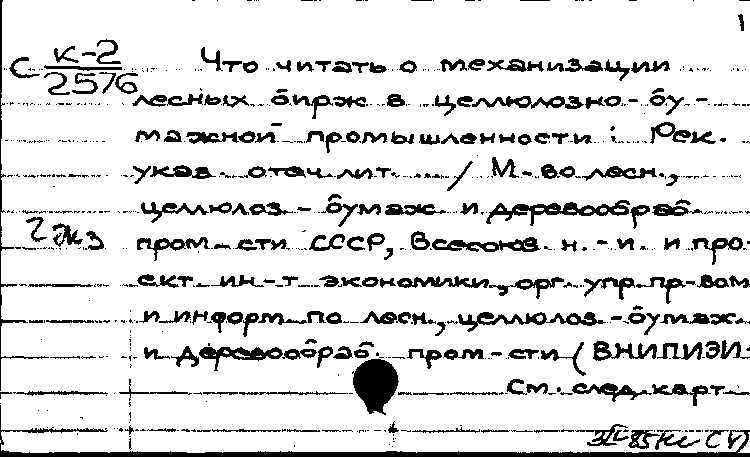 1
С К-2/2576
Что читать о механизации
лесных бирж в целлюлозно-бу-
мажной промышленности: Рек.
указ. отеч. лит. ... / М-во лесн.,
целлюлоз.-бумаж. и деревообраб.
2 экз
пром-сти СССР, Всесоюз. н.-и. и про-
ект. ин-т экономики, орг. упр. пр-вом
и информ. по лесн., целлюлоз.-бумаж.
и деревообраб. пром-сти (ВНИПИЭИ-
См. след. карт.